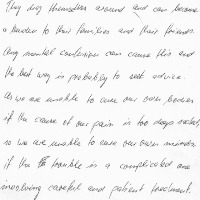 They drag themselves around and can become
a burden to their families and their friends.
Any mental confusion can cause this and
the best way is probably to seek advice.
As we are unable to cure our own bodies
if the cause of our pain is too deep rooted,
so we are unable to cure our own minds
if the trouble is a complicated one
involving careful and patient treatment.